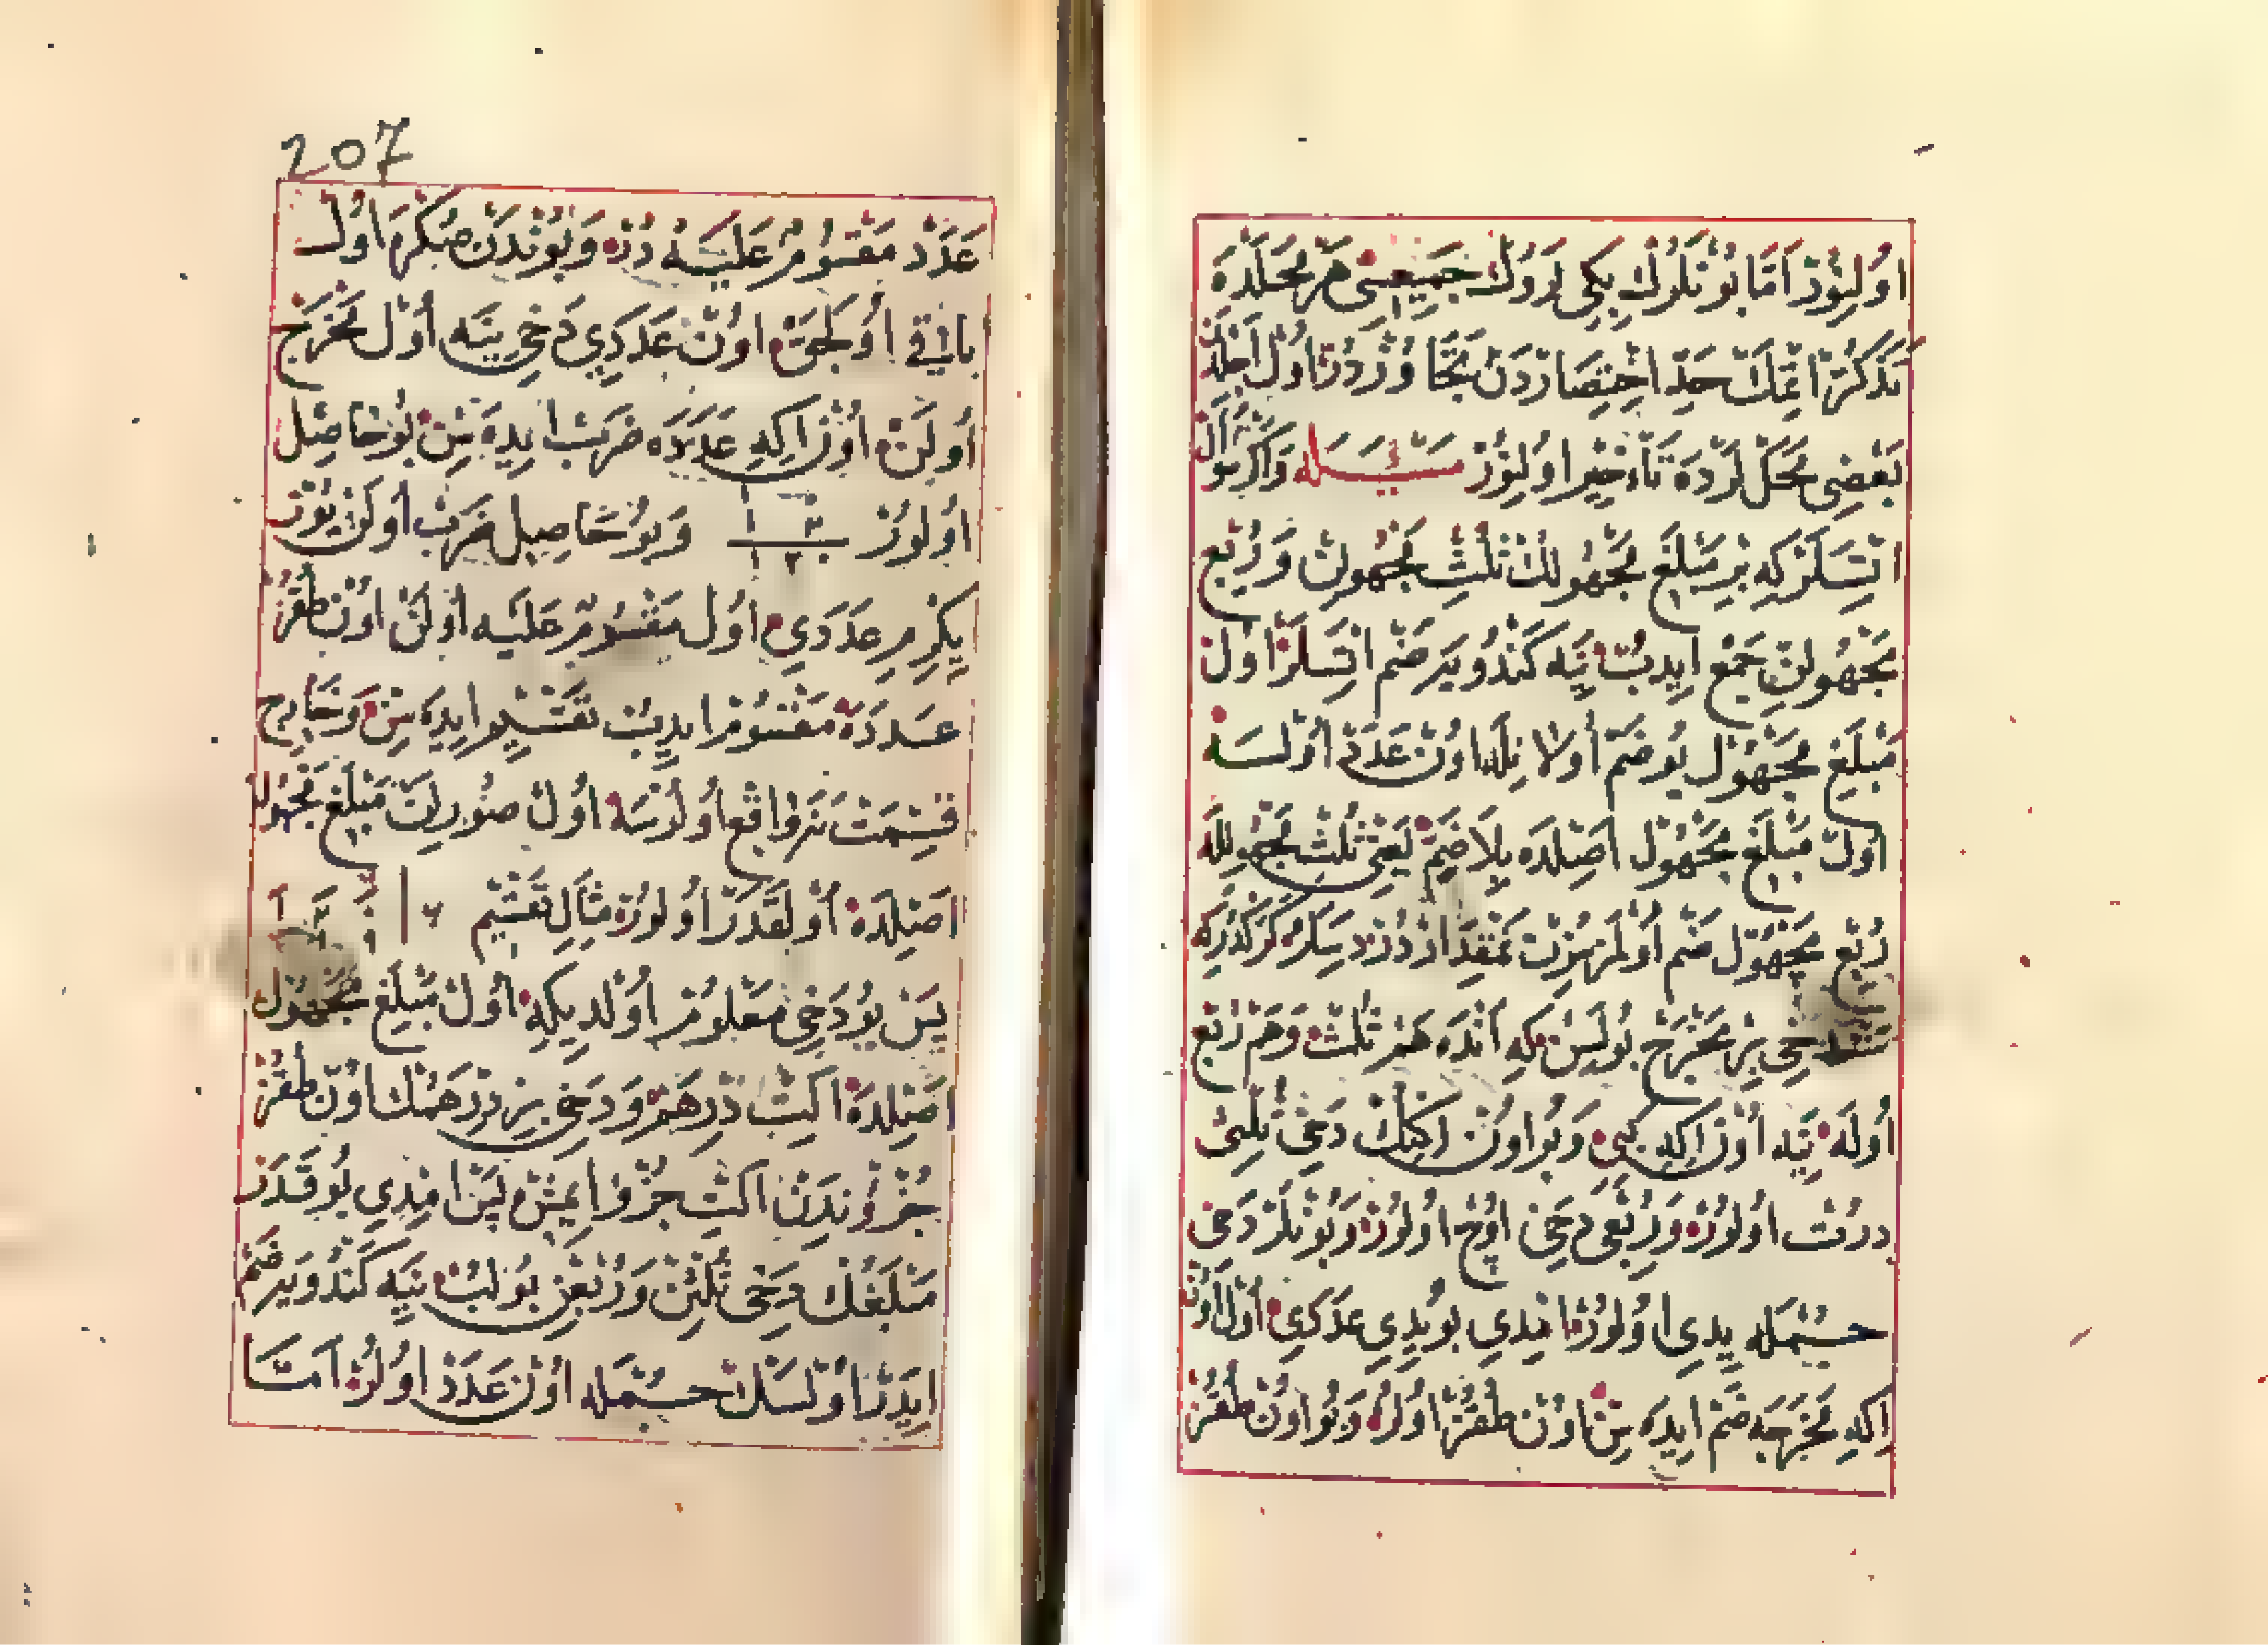 اولنور اما بونلرك بكی لردوك جميعسی هر محلده
تذكر اتمك حد اختصاردن تجاوزدر اول اجلدن
بعضی محللرده تأخير اولنور مسئله واكر سؤال
اتسلر كه بر مبلغ مجهولك ثلث مجهولن و ربع
مجهولن جمع ايدب ينه كندويه ضم اتسلر اول
مبلغ مجهول بو ضم اولا نله اون عدد اولسه
اول مبلغ مجهول اصلده بلا ضم يعنی ثلث مجهولله
ربع مجهول ضم اولمزن نمقداردر ديسلر كركدر كه
دخی بر مخرج بولسن كه انده هم ثلث و هم ربع
اوله ينه اون اكی كبی و بو اون اكينك دخی ثلثی
درت اولور و ربعی دخی اوچ اولور و بونلر دخی
جمله يدی اولور ايمدی بو يدی عددی اول اون
اكی مخرجه ضم ايده سن اون طقز اولور و بو اون طقز
207
عدد مقسوم عليه در و بوندن صكره اول
باقی اولجق اون عددی دخی ينه اول مخرج
اولن اون اكی عدده ضرب ايده سن بو حاصل
اولور ١٢٠ و بو حاصل ضرب اولن يوز
يكرمی عددی اول مقسوم عليه اولن اون طقز
عدده مقسوم ايدب تقسيم ايده سن و خارج
قسمت نه واقع اولورسه اول صوريلن مبلغ مجهول
اصلده اولقدر اولور مثال تقسيم ٦
پس بو دخی معلوم اولديكه اول مبلغ مجهول
اصلده التی درهم و دخی بر درهمك اون طقز
جزوندن التی جزو ايمش پس ايمدی بو قدر
مبلغك دخی ثلثن و ربعن بولب ينه كندويه ضم
ايدر اولسك جمله اون عدد اولر اما